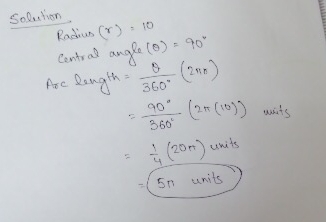 Solution
Radius (r) = 10
Central angle (θ) = 90°
Arc length = θ/360° (2πr)
= 90°/360° (2π(10)) units
= 1/4 (20π) units
= 5π units